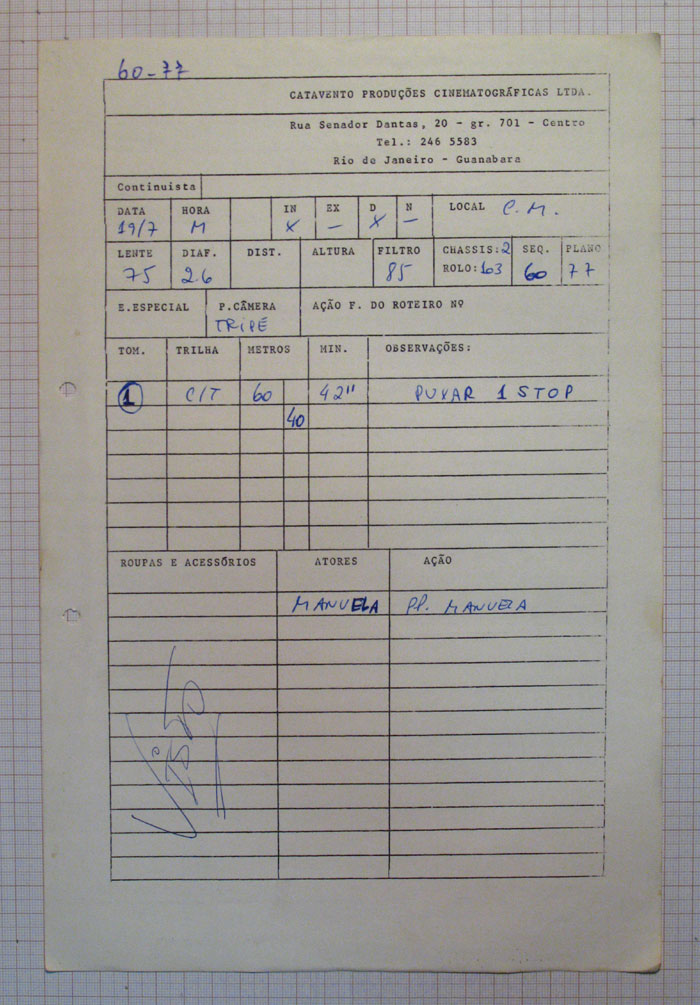 60-77
CATAVENTO PRODUÇÕES CINEMATOGRÁFICAS LTDA.
Rua Senador Dantas, 20 - gr. 701 - Centro
Tel.: 246 5583
Rio de Janeiro - Guanabara
Continuista
DATA HORA IN EX D N LOCAL C. M.
19/7 M X — X —
LENTE DIAF. DIST. ALTURA FILTRO CHASSIS: 2 SEQ. PLANO
75 2.6 85 ROLO: 103 60 77
E.ESPECIAL P.CÂMERA AÇÃO F. DO ROTEIRO Nº
TRIPÉ
TOM. TRILHA METROS MIN. OBSERVAÇÕES:
1 C/T 60 42" PUXAR 1 STOP
40
ROUPAS E ACESSÓRIOS ATORES AÇÃO
MANUELA PP. MANUELA